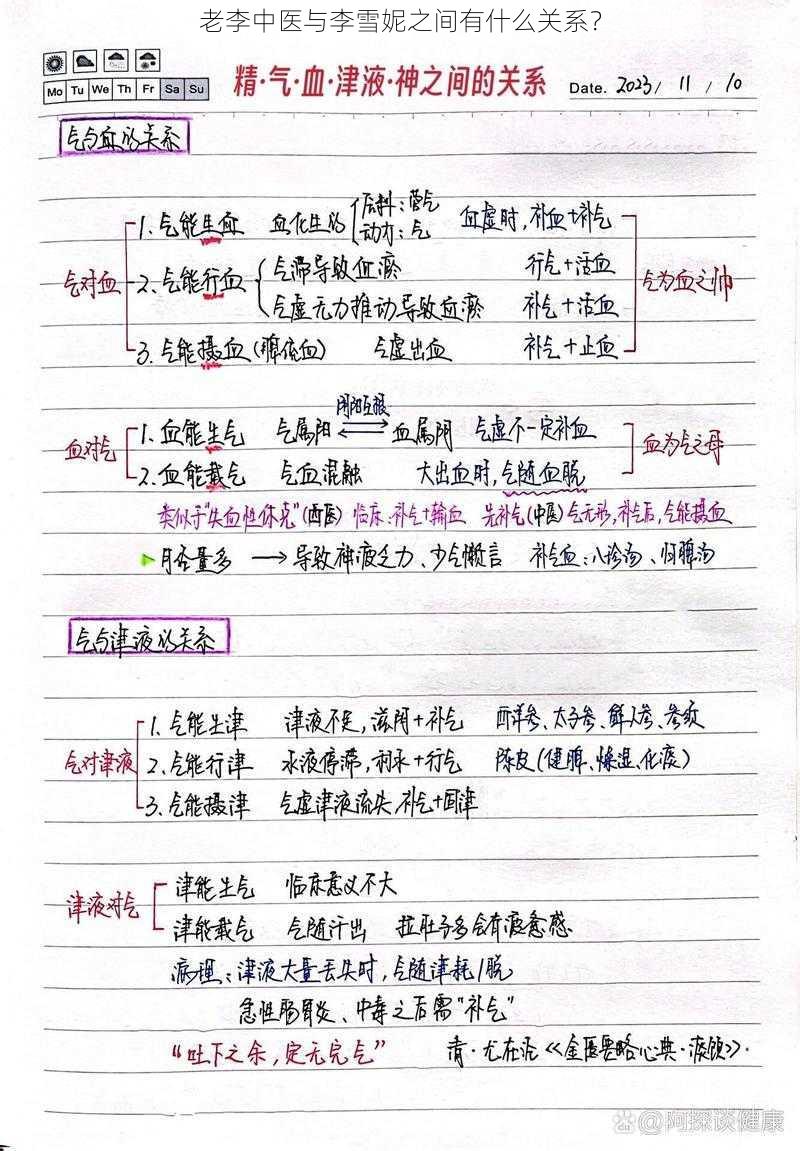 老李中医与李雪妮之间有什么关系?
精·气·血·津液·神之间的关系 Date. 2023/ 11 / 10
Mo Tu We Th Fr Sa Su
气与血的关系
气对血
1. 气能生血 血化生的 原料:营气 动力:气 血虚时,补血+补气
2. 气能行血 气滞导致血瘀 行气+活血
气虚无力推动导致血瘀 补气+活血
3. 气能摄血(脾统血) 气虚出血 补气+止血
气为血之帅
血对气
阴阳互根
1. 血能生气 气属阳 血属阴 气虚不一定补血
2. 血能载气 气血混融 大出血时,气随血脱
血为气之母
类似于“失血性休克”(西医) 临床:补气+输血 先补气(中医)气无形,补气后,气能摄血
月经量多 → 导致神疲乏力、少气懒言 补气血:八珍汤、归脾汤
气与津液的关系
气对津液
1. 气能生津 津液不足,滋阴+补气 西洋参、太子参、鲜人参、参须
2. 气能行津 水液停滞,利水+行气 陈皮(健脾、燥湿、化痰)
3. 气能摄津 气虚津液流失,补气+固津
津液对气
津能生气 临床意义不大
津能载气 气随汗出 拉肚子多会有疲惫感
病理:津液大量丢失时,气随津耗/脱
急性肠胃炎、中毒之后需“补气”
“吐下之余,定无完气” 清·尤在泾《金匮要略心典·痰饮》.
@阿探谈健康